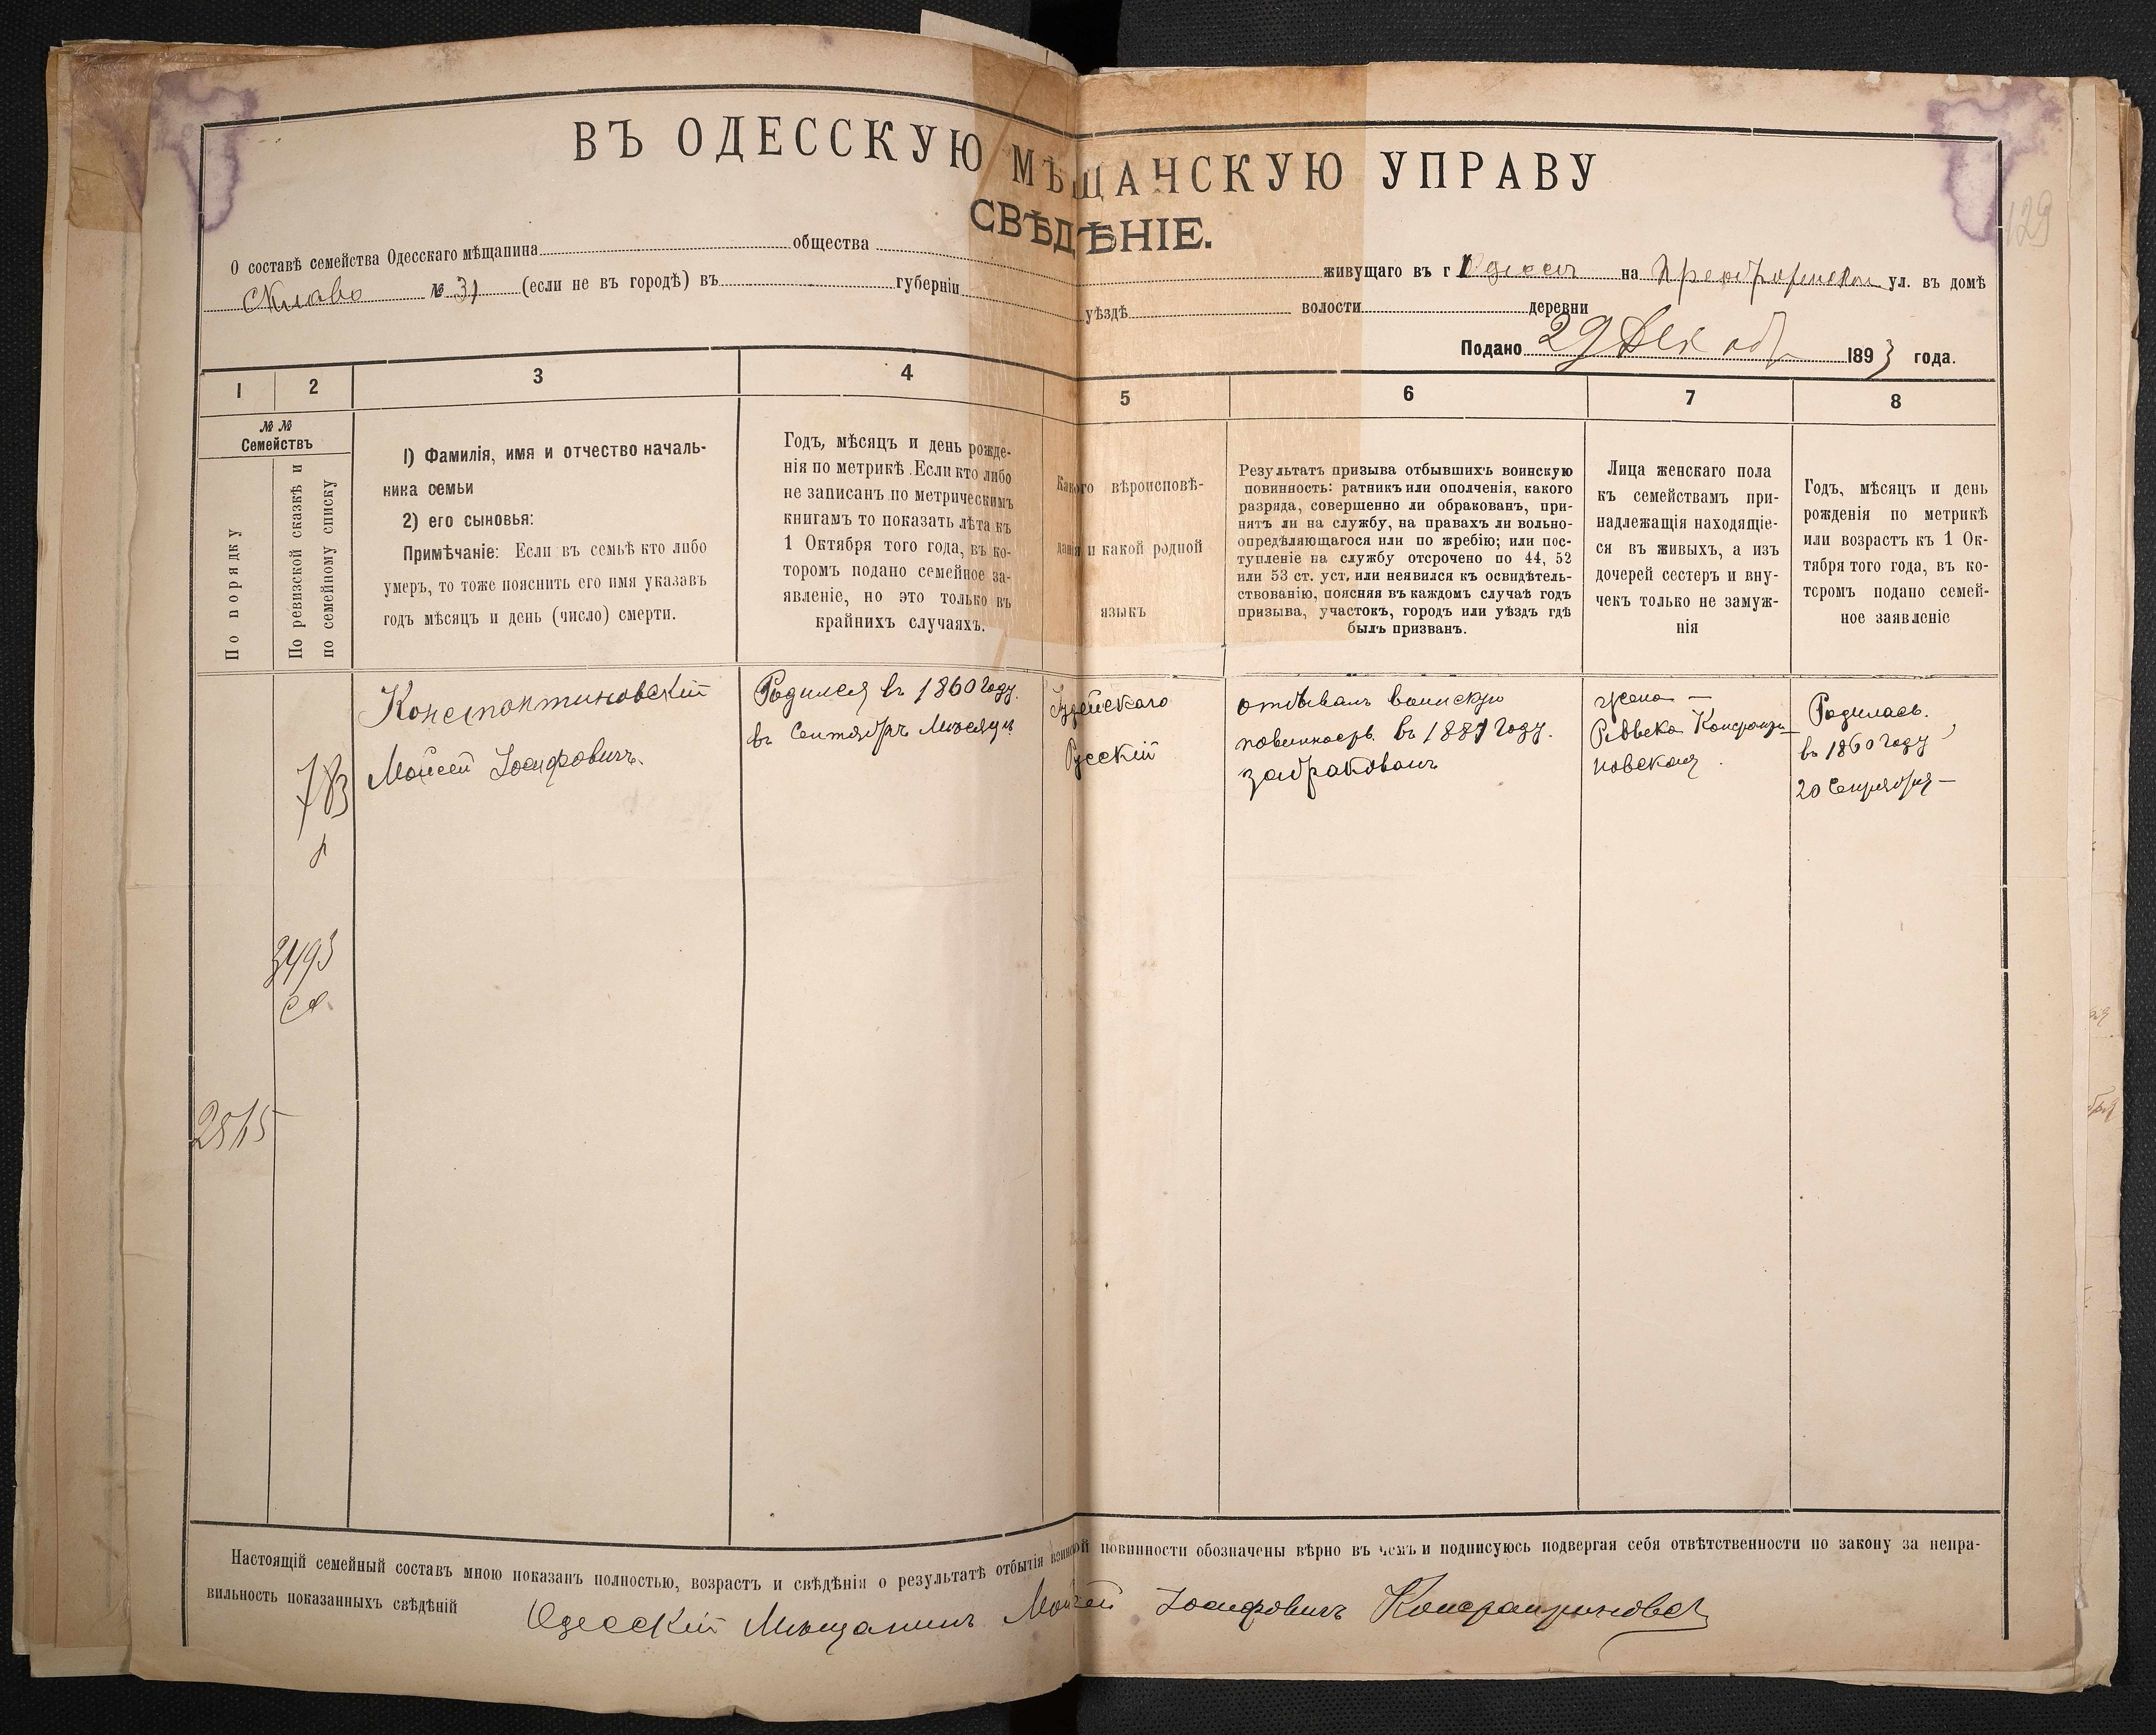 129
ВЪ ОДЕССКУЮ МѢЩАНСКУЮ УПРАВУ
СВѢДѢНІЕ.
О составѣ семейства Одесскаго мѣщанина общества живущаго въ г Одессѣ на ул. въ домѣ
№ 31 (если не въ городѣ) въ губерніи уѣздѣ волости деревни
Подано 29 Декабр 1893 года.
1 2 3 4 5 6 7 8
№ №
Семействъ
По порядку
По ревизской сказкѣ и
по семейному списку
1) Фамилія, имя и отчество началь-
ника семьи
2) его сыновья:
Примѣчаніе: Если въ семьѣ кто либо
умеръ, то тоже пояснить его имя указавъ
годъ мѣсяцъ и день (число) смерти.
Годъ, мѣсяцъ и день рожде-
нія по метрикѣ. Если кто либо
не записанъ по метрическимъ
книгамъ то показать лѣта къ
1 Октября того года, въ ко-
торомъ подано семейное за-
явленіе, но это только въ
крайнихъ случаяхъ.
Какого вѣроисповѣ-
данія и какой родной
языкъ
Результатъ призыва отбывшихъ воинскую
повинность: ратникъ или ополченія, какого
разряда, совершенно ли обракованъ, при-
нятъ ли на службу, на правахъ ли вольно-
опредѣляющагося или по жребію; или пос-
тупленіе на службу отсрочено по 44, 52
или 53 ст. уст. или неявился къ освидѣтель-
ствованію, поясняя въ каждомъ случаѣ годъ
призыва, участокъ, городъ или уѣздъ гдѣ
былъ призванъ.
Лица женскаго пола
къ семействамъ при-
надлежащія находящіе-
ся въ живыхъ, а изъ
дочерей сестеръ и вну-
чекъ только не замуж-
нія
Годъ, мѣсяцъ и день
рожденія по метрикѣ
или возрастъ къ 1 Ок-
тября того года, въ ко-
торомъ подано семей-
ное заявленіе
783
3493
Константиновскій
Мойсей Іосифовичъ.
Родился въ 1860 году.
въ Сентябрѣ Мѣсяцѣ
Іудейскаго
Русскій
отбывалъ воинскую
повинность въ 1881 году.
забракованъ
жена —
Реввека Константи-
новская.
Родилась.
въ 1860 году
20 Сентября —
Настоящій семейный составъ мною показанъ полностью, возрастъ и свѣдѣнія о результатѣ отбытія воинской повинности обозначены вѣрно въ чемъ и подписуюсь подвергая себя отвѣтственности по закону за непра-
вильность показанныхъ свѣдѣній
Одесскій Мѣщанинъ Мойсей Іосифовичъ Константиновск